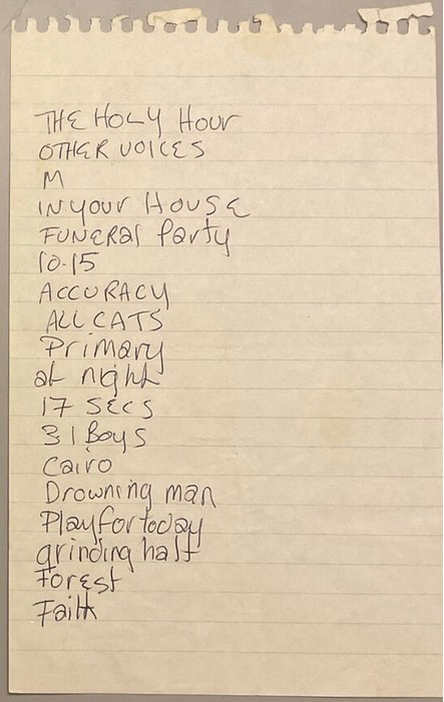 THE HOLY HOUR
OTHER VOICES
M
IN YOUR HOUSE
FUNERAL Party
10.15
ACCURACY
ALL CATS
Primary
at night
17 SECS
31 Boys
Cairo
Drowning man
Playfortoday
grinding halt
Forest
Faith